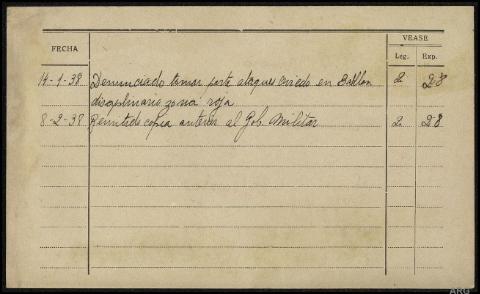 FECHA
VEASE
Leg. Exp.
14-1-38 Denunciado tomar parte ataques Oviedo en Batllon 2 28
disciplinario zona roja
8-2-38 Remitido copia anterior al Gob. Militar 2 28
ARG